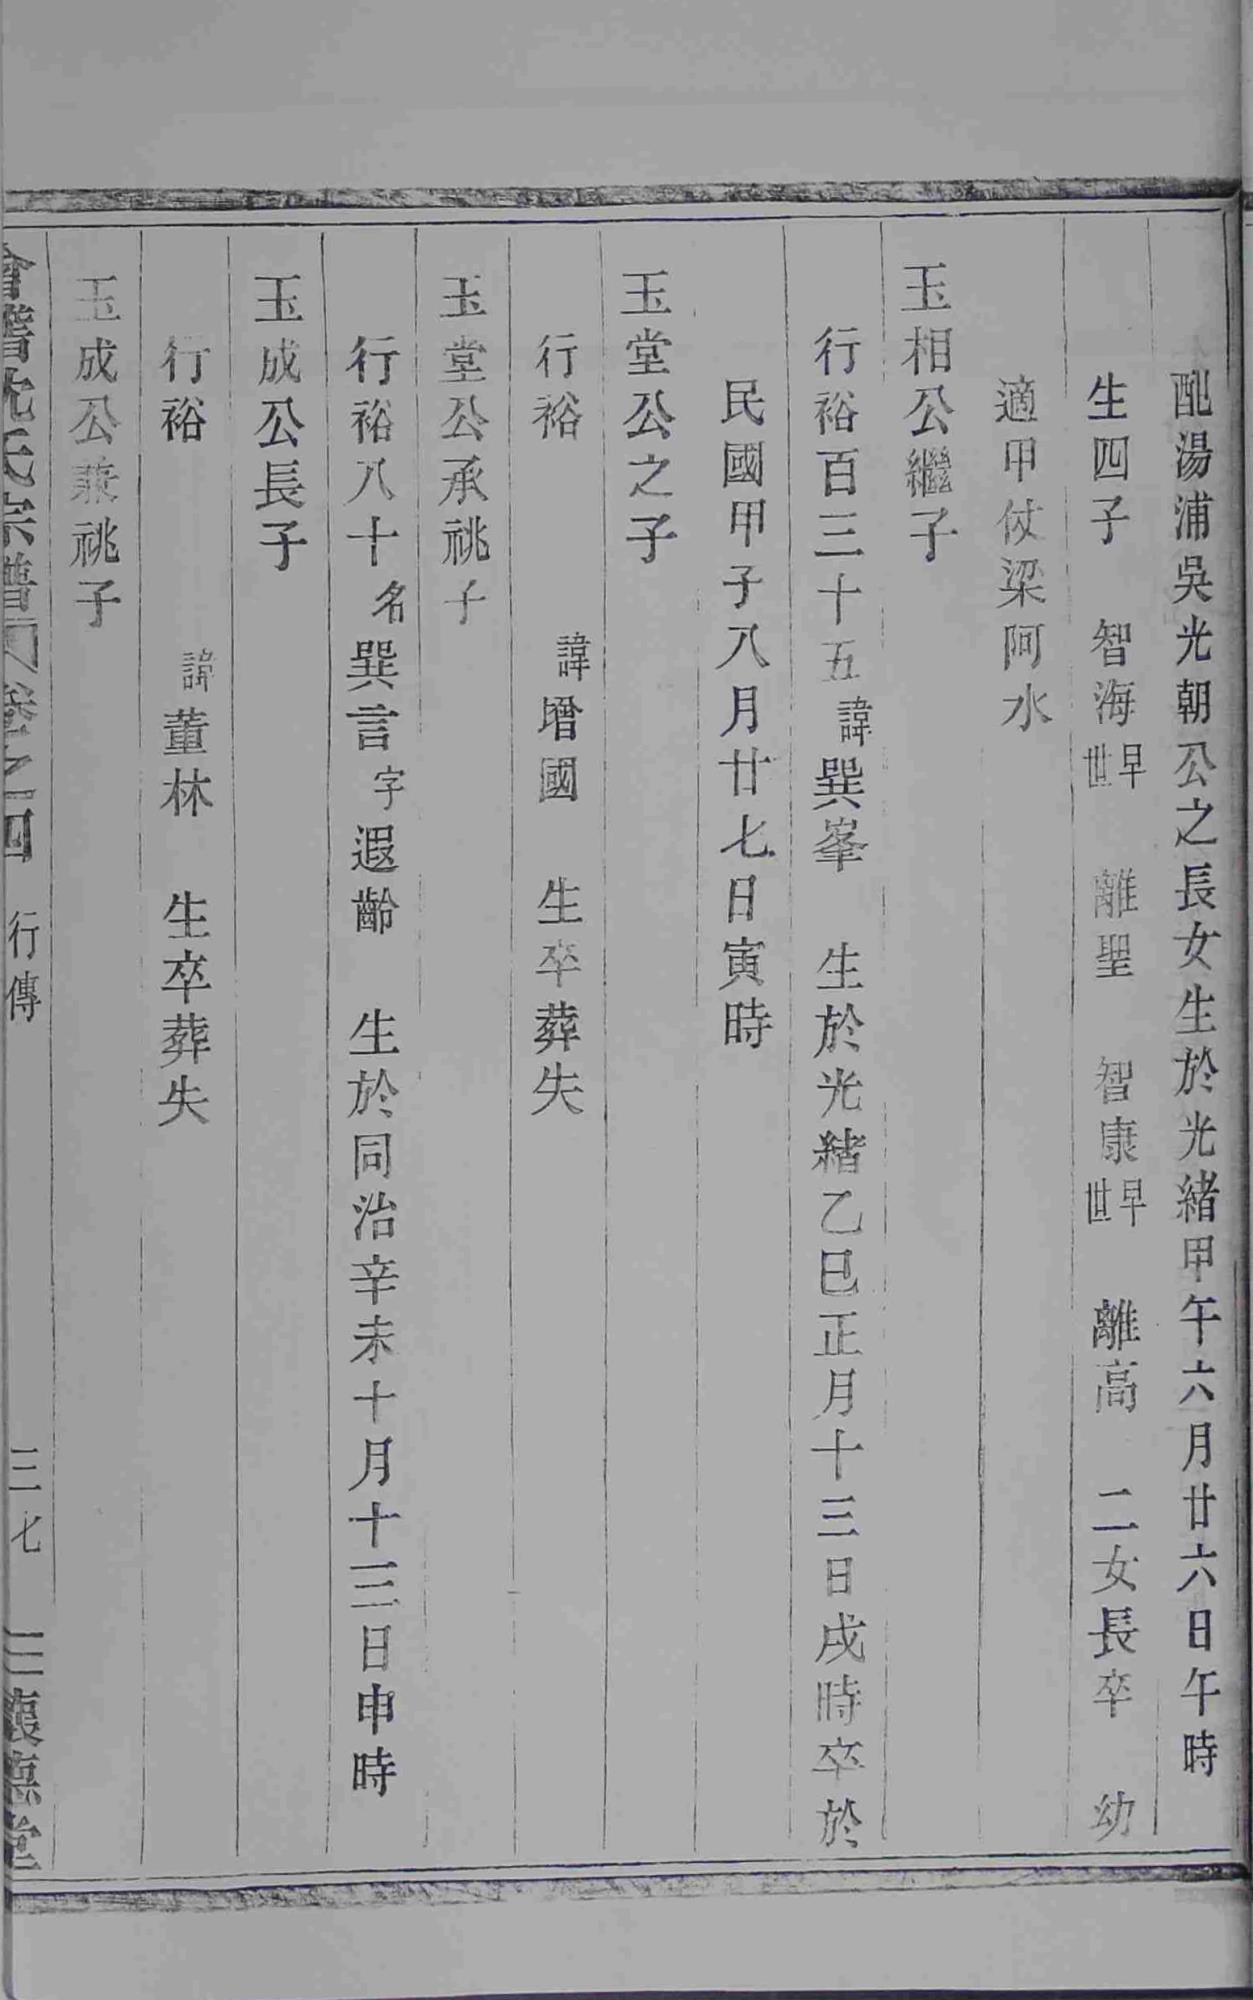 配湯浦吳光朝公之長女生於光緒甲午六月廿六日午時
生四子 智海早世 離聖 智康早世 離高 二女長卒 幼
適甲仗梁阿水
玉相公繼子
行裕百三十五諱巽峯 生於光緒乙巳正月十三日戌時卒於
民國甲子八月廿七日寅時
玉堂公之子
行裕 諱增國 生卒葬失
玉堂公承祧子
行裕八十名巽言字遐齡 生於同治辛未十月十三日申時
玉成公長子
行裕 諱董林 生卒葬失
玉成公兼祧子
會稽沈氏宗譜 卷之四 行傳 三七 懷德堂